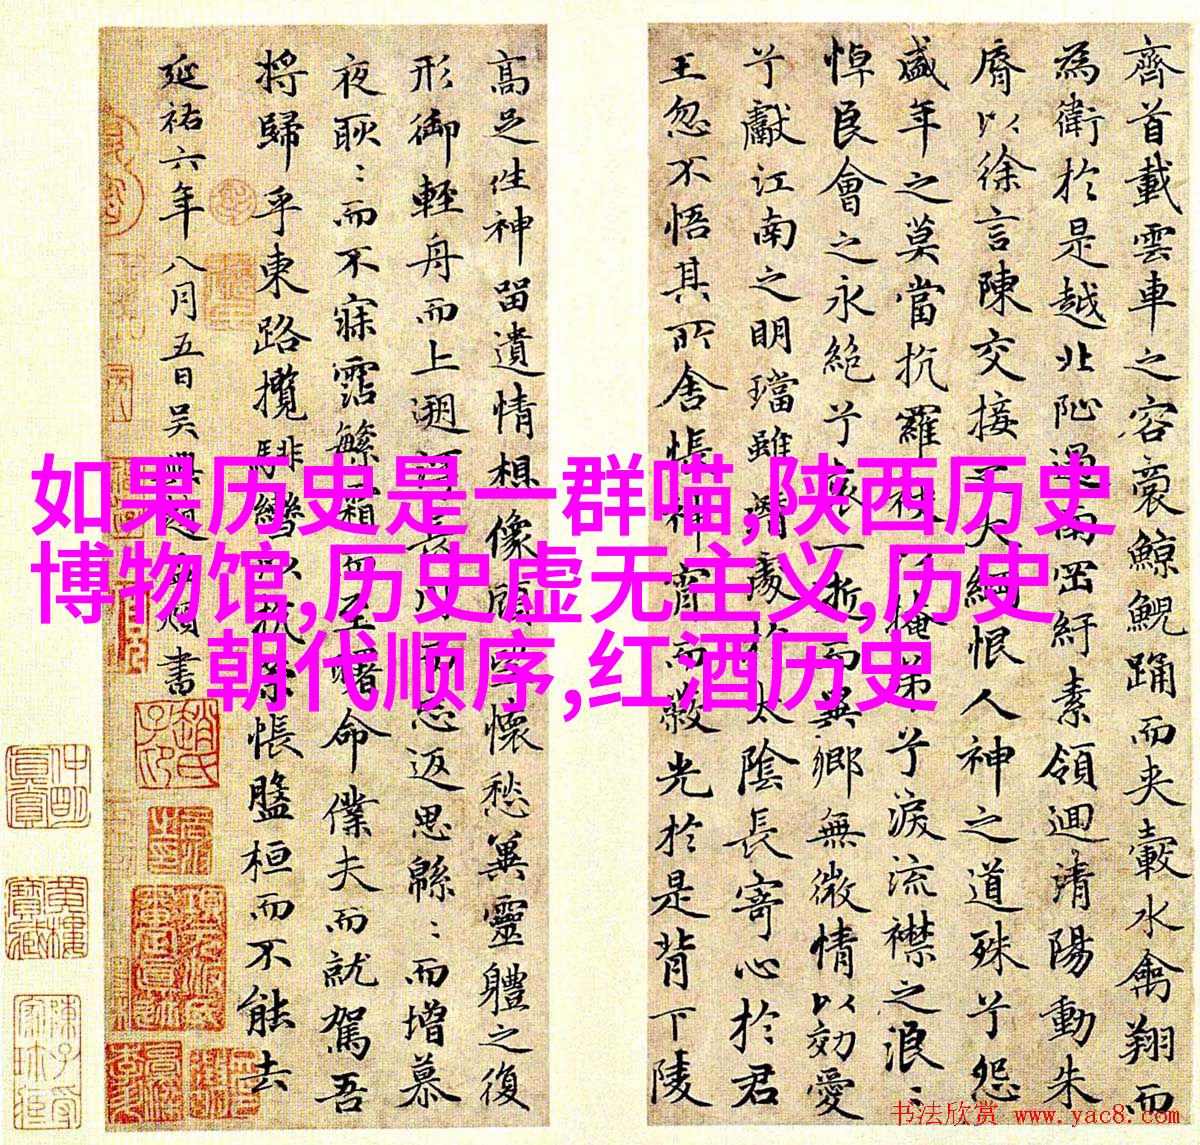 齊首載雲車之容裔鯨鯢踊而夾轂水禽翔而
為衛於是越北沚過南岡紆素領迴清陽動朱
脣以徐言陳交接之大綱恨人神之道殊兮怨
盛年之莫當抗羅袂以掩涕兮淚流襟之浪〻
悼良會之永絕兮哀一逝而異鄉無微情以効愛
兮獻江南之明璫雖潛處於太陰長寄心於君
王忽不悟其所舍悵神宵而蔽光於是背下陵
高足往神留遺情想像顧望懷愁冀靈體之復
形御輕舟而上遡浮長川而忘返思緜〻而增慕
夜耿〻而不寐霑繁霜而至曙命僕夫而就駕吾
將歸乎東路攬騑轡以抗策悵盤桓而不能去
延祐六年八月五日吳興趙孟頫書
如果历史是一群喵,陕西历史
博物馆,历史虚无主义,历史
朝代顺序,红酒历史
书法欣赏 www.yac8.com